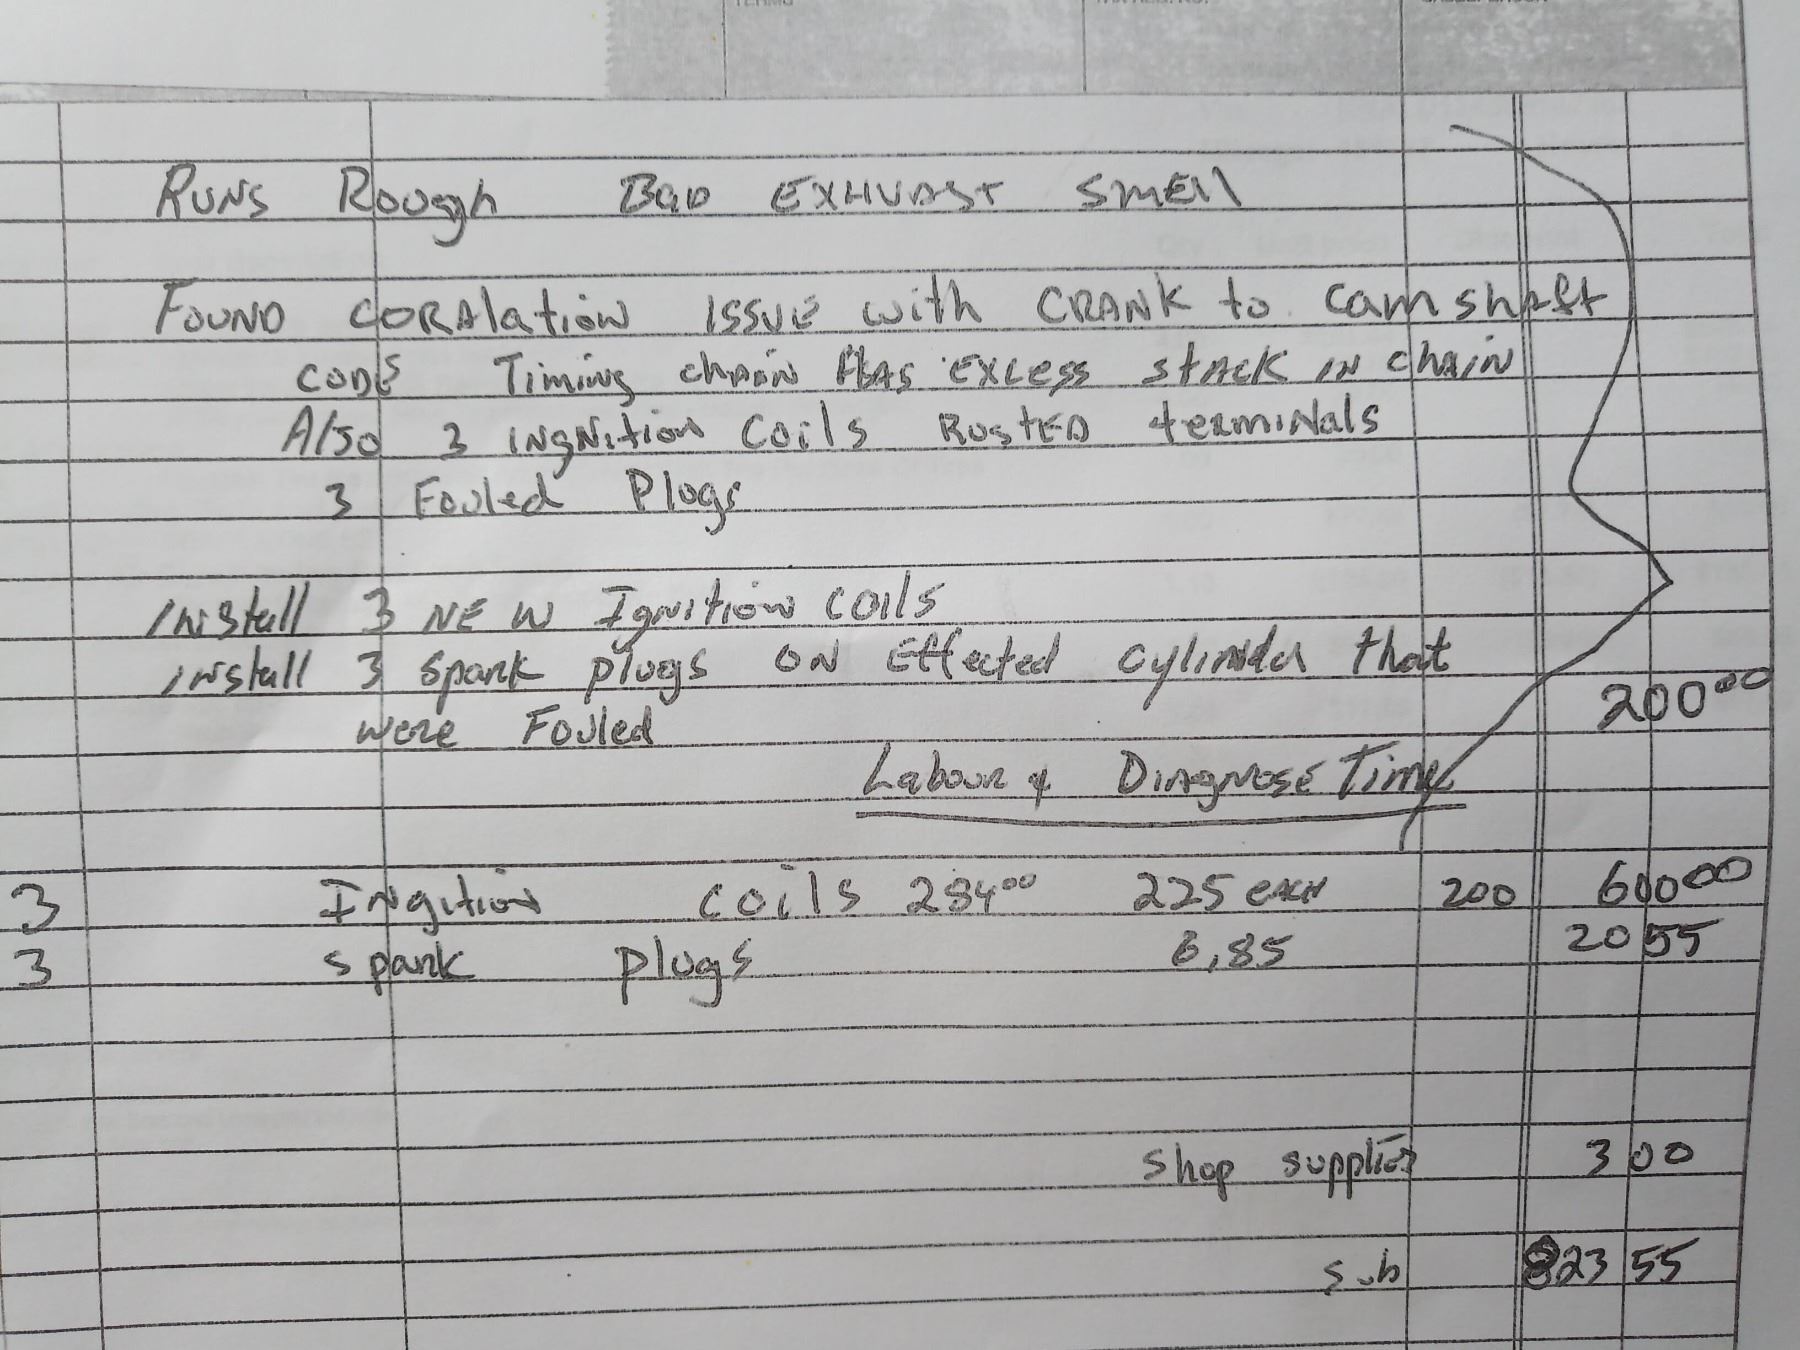 RUNS Rough BAD EXHUAST SMEll
FOUND CORAlation ISSUE with CRANK to camshaft
CODES Timing chain HAS EXCess slACK IN chAIN
Also 3 INgNition Coils RUSTED terminals
3 Fouled Plugs
Install 3 NEW Ignition coils
Install 3 spark plugs ON Effected cylinder that
were Fouled
200 00
Labour & DIAGNOSE Time
3 INgition coils 284 00 225 each 200 600 00
3 spark plugs 6,85 20 55
Shop supplies 3 00
Sub 823 55